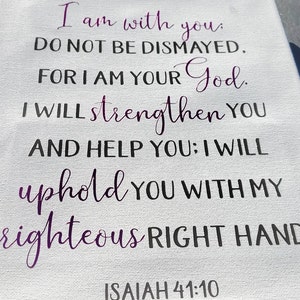 I am with you;
DO NOT BE DISMAYED,
FOR I AM YOUR God.
I WILL strengthen YOU
AND HELP YOU; I WILL
uphold YOU WITH MY
righteous RIGHT HAND
ISAIAH 41:10